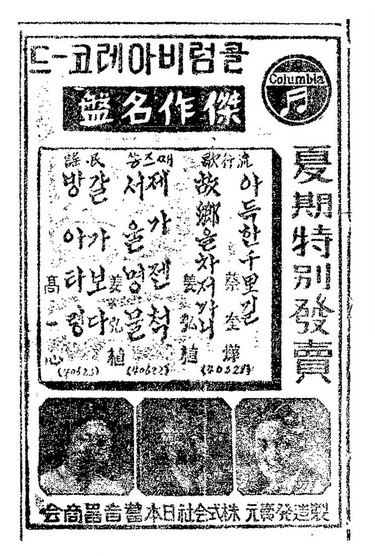 콜럼비아레코-드
Columbia
傑作名盤
夏期特別發賣
流行歌
아득한千里길
蔡奎燁
故鄕을차저가니
姜弘植
째즈쏭
제가젠척
서울명물
姜弘植
(40622)
民謠
갈가보다
방아타령
高一心
製造發賣元 株式会社日本蓄音器商会